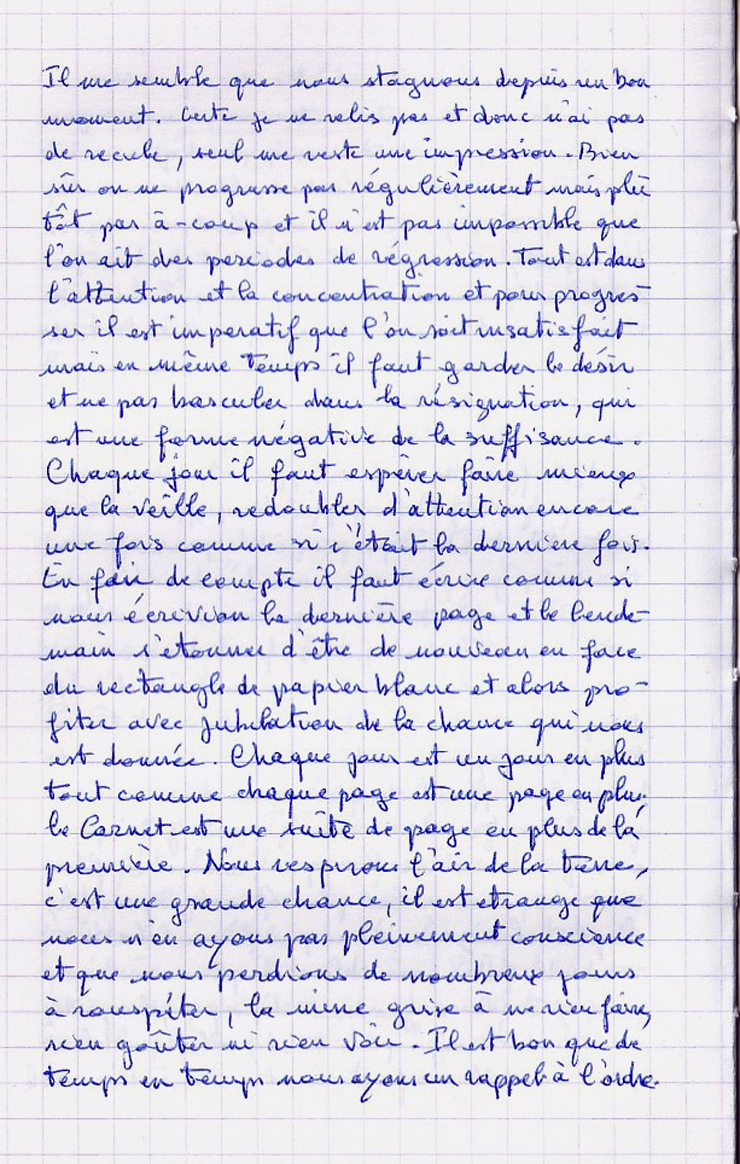 Il me semble que nous stagnons depuis un bon
moment. Certe je ne relis pas et donc n'ai pas
de recule, seul me reste une impression. Bien
sûr on ne progresse pas régulièrement mais plu
tôt par à-coup et il n'est pas impossible que
l'on ait des periodes de régression. Tout est dans
l'attention et la concentration et pour progres-
ser il est imperatif que l'on soit insatisfait
mais en même temps il faut garder le désir
et ne pas basculer dans la résignation, qui
est une forme négative de la suffisance.
Chaque jour il faut espérer faire mieux
que la veille, redoubler d'attention encore
une fois comme si c'était la derniere fois.
En fin de compte il faut écrire comme si
nous écrivion la dernière page et le lende-
main s'etonner d'être de nouveau en face
du rectangle de papier blanc et alors pro-
fiter avec jubilation de la chance qui nous
est donnée. Chaque jour est un jour en plus
tout comme chaque page est une page en plus.
le Carnet est une suite de page en plus de la
première. Nous respirons l'air de la terre,
c'est une grande chance, il est etrange que
nous n'en ayons pas pleinement conscience
et que nous perdions de nombreux jours
à rouspéter, la mine grise à ne rien faire,
rien goûter ni rien voir. Il est bon que de
temps en temps nous ayons un rappel à l'ordre.